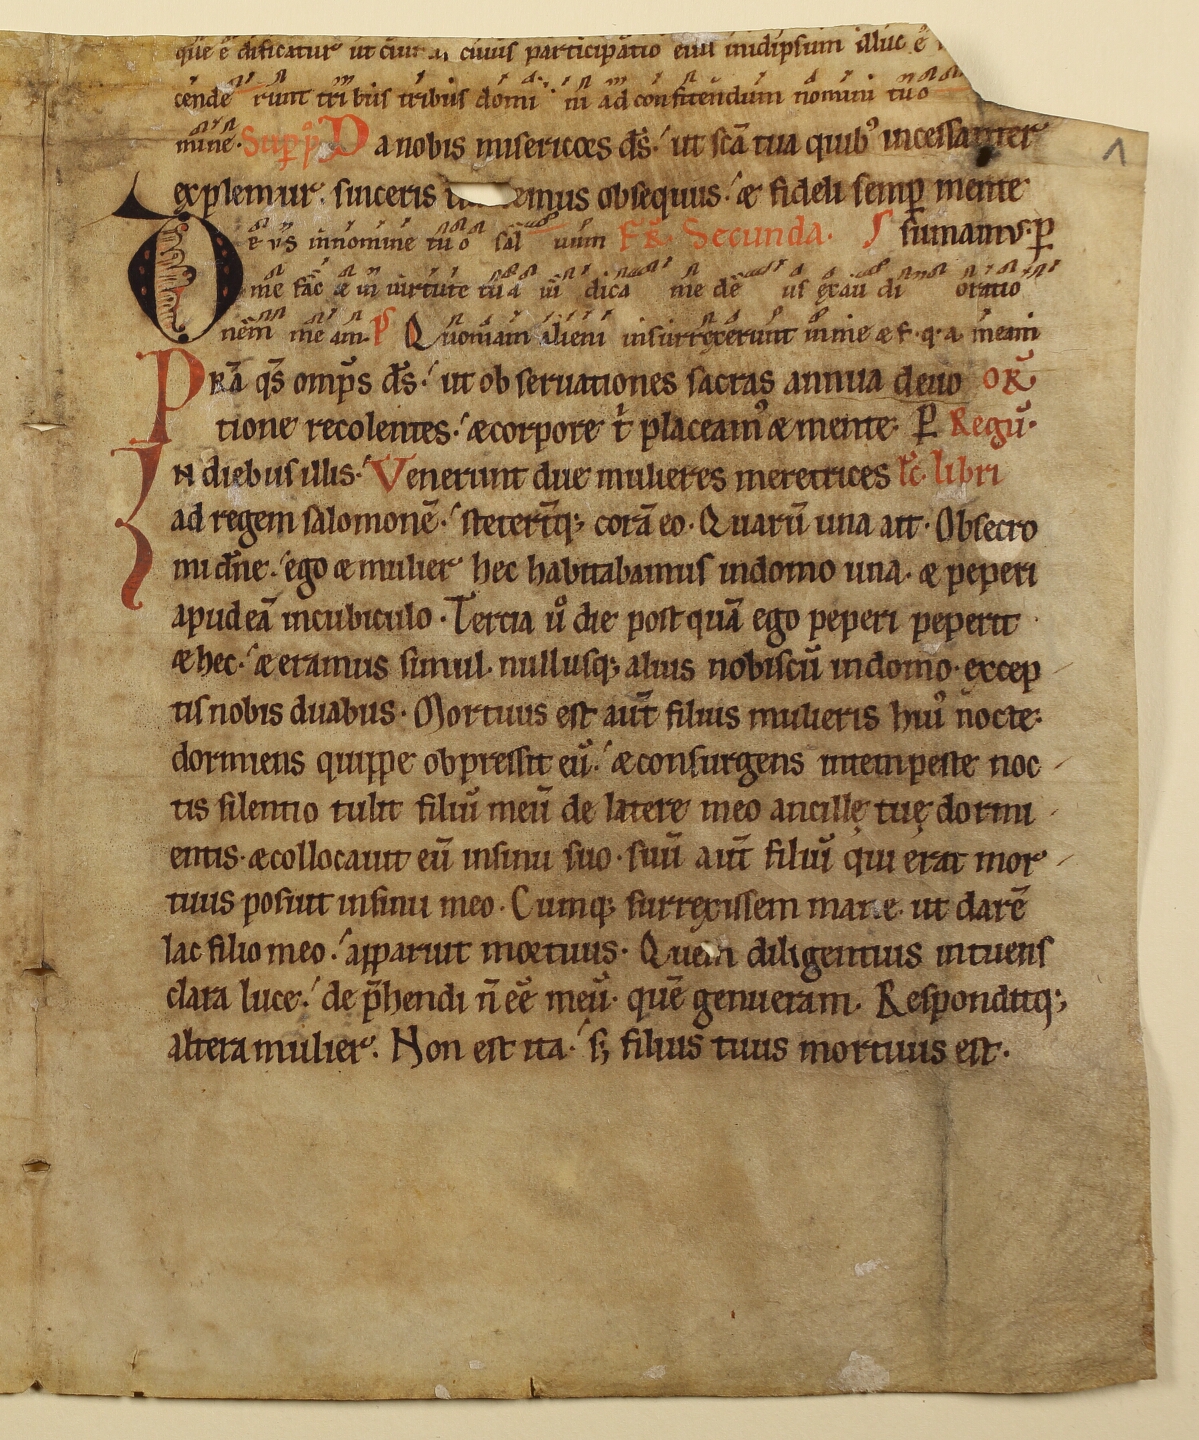 que ē dificatur ut ciui cuius participatio eius inidipsum illuc ē
cende runt tri bus tribus domi ni ad confitendum nomini tuo
mine. Da nobis misericors d̄s. ut sc̄a tua quibꝰ incessanter
explemur. sinceris emus obsequiis. & fideli semꝑ mente
ē us innomine tuo sal uum Fr̄ Secunda. sumamus. ꝑ
me fac & in uirtute tua iu dica me dē us exau di oratio
nem me am. p̄s Quoniam alieni insurrexerunt in me & f. q. a. meam
Prā qs om̄ps d̄s. ut obseruationes sacras annua deuo OR̄
tione recolentes. & corpore t̄ placeamꝰ & mente. ꝑ Regū.
In diebus illis. Venerunt due mulieres meretrices Lc̄. libri
ad regem salomonē. steter̄tq; corā eo. Quarū una ait. Obsecro
mi d̄ne. ego & mulier hec habitabamus indomo una. & peperi
apud eā incubiculo. Tercia ů die post quā ego peperi peperit
& hec. & eramus simul. nullusq; alius nobiscū indomo. excep
tis nobis duabus. Mortuus est aut̄ filius mulieris huiꝰ nocte.
dormiens quippe obpressit eū. & consurgens intempeste noc
tis silentio tulit filiū meū de latere meo ancillę tuę dormi
entis. & collocauit eū insinu suo. suū aut̄ filiū qui erat mor
tuus posuit insinu meo. Cumq; surrexissem mane. ut darē
lac filio meo. apparuit mortuus. Quem diligentius intuens
clara luce. de p̄hendi n̄ eē meū. quē genueram. Responditq;
altera mulier. Non est ita. s; filius tuus mortuus est.